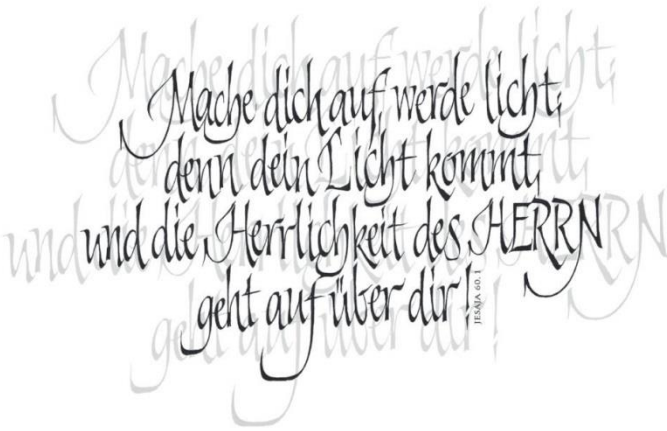 Mache dich auf werde licht;
denn dein Licht kommt,
und die Herrlichkeit des HERRN
geht auf über dir!
JESAJA 60. 1